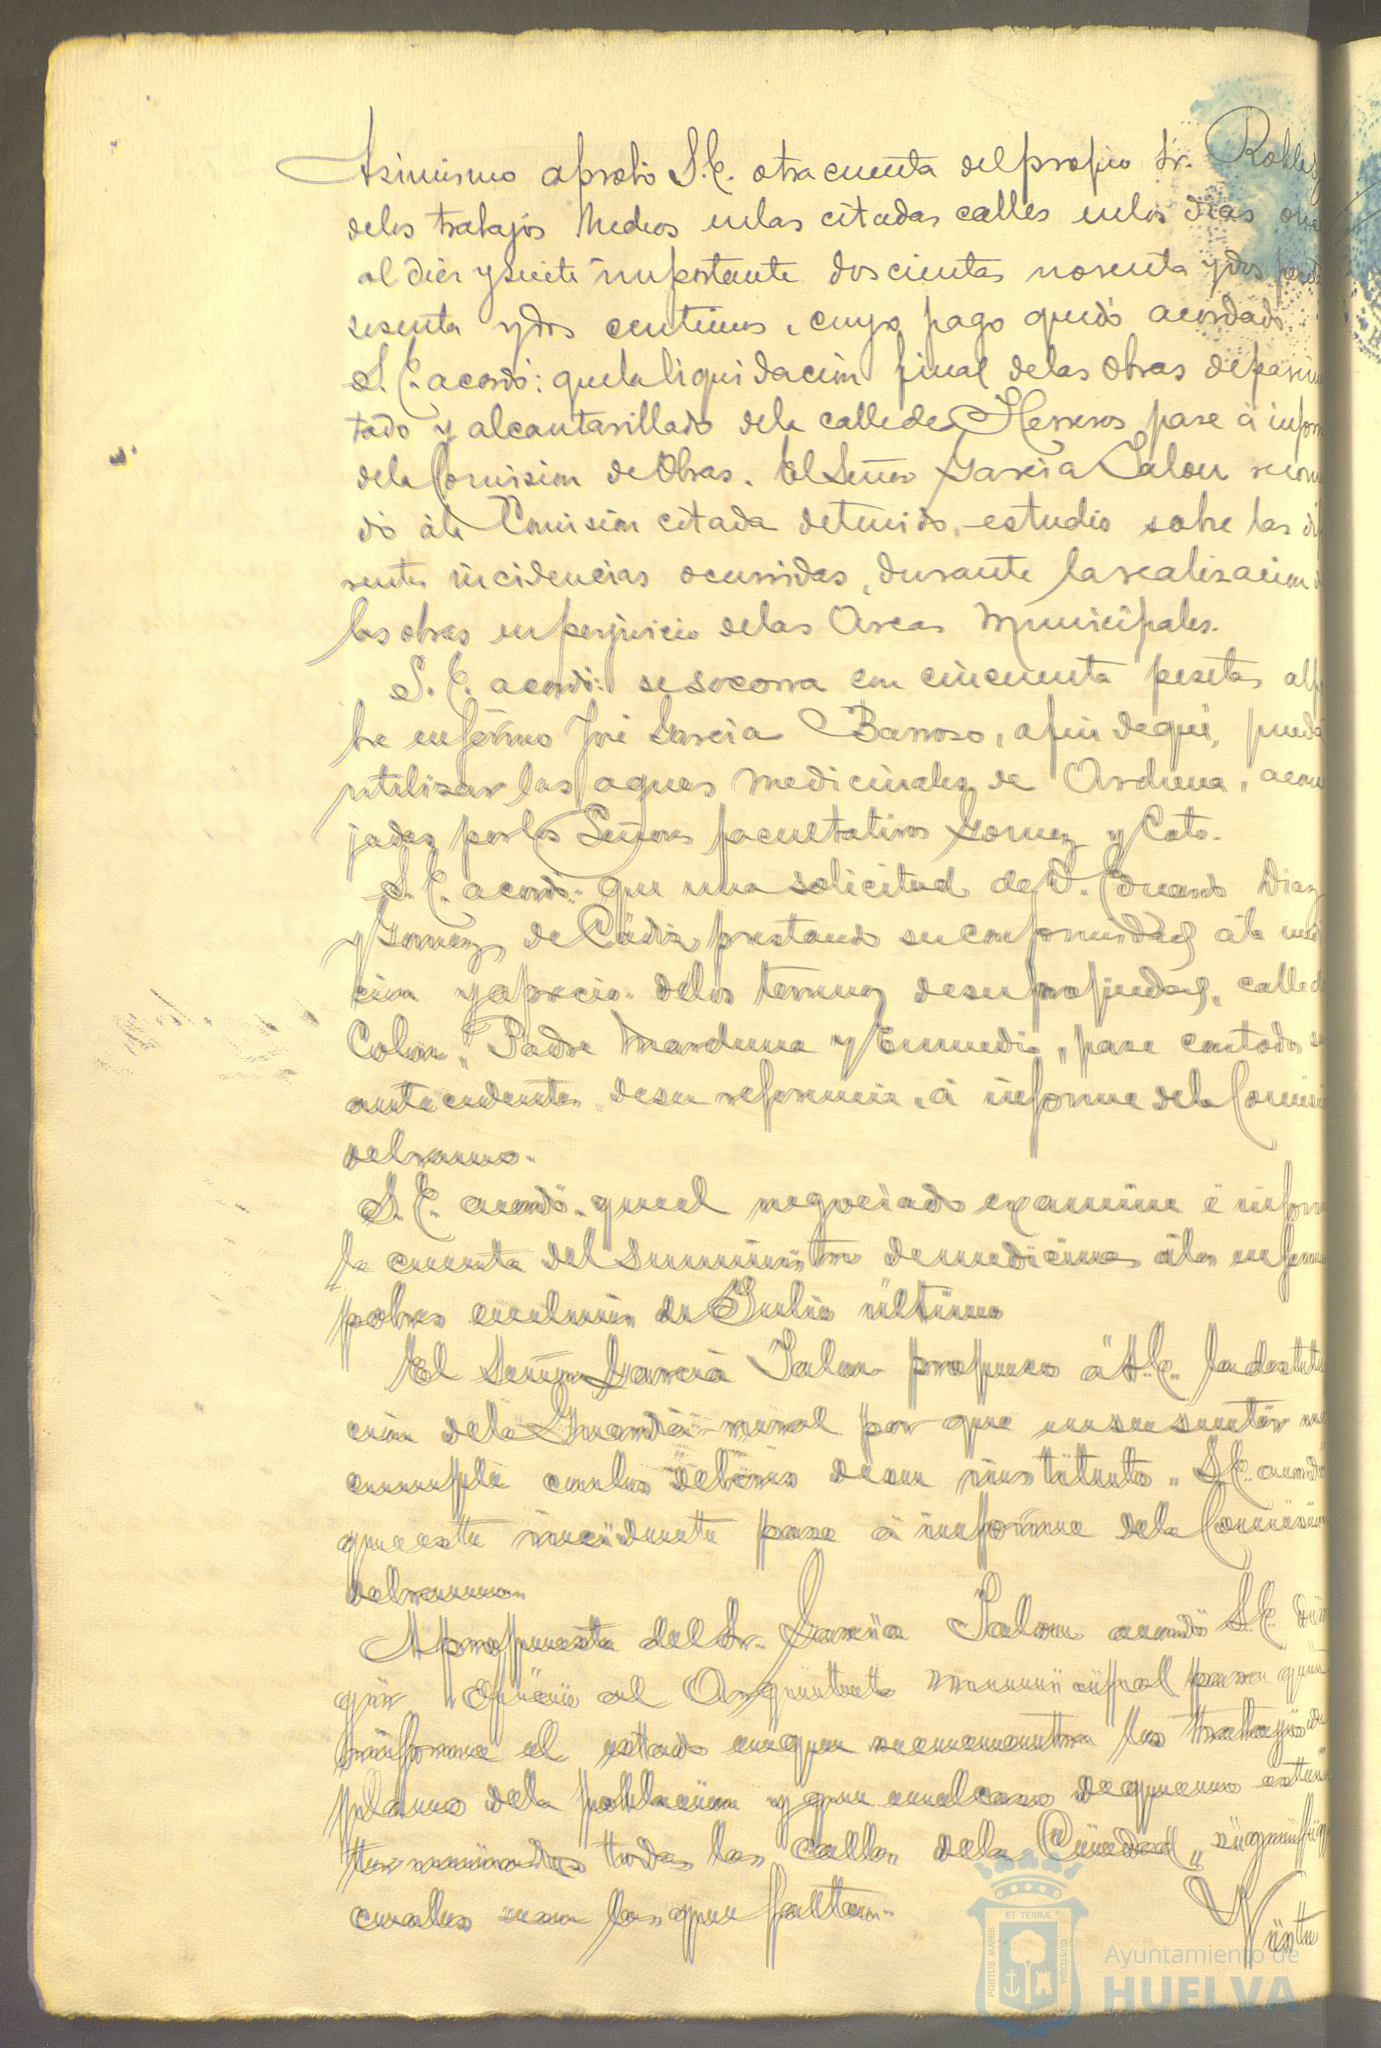 Asimismo aprobó S.E. otra cuenta del propio Sr. Robles,
de los trabajos hechos en las citadas calles en los dias once
al diez y siete importante doscientas noventa y dos peset
sesenta y dos centimos, cuyo pago quedó acordado.
S.E. acordó: que la liquidacion final de las obras de pavim
tado y alcantarillado de la calle de Herreros, pase á inform
de la Comision de Obras. El Señor Garcia Jalon recom
dó á la Comision citada detenido estudio sobre las di
rentes incidencias ocurridas, durante la realizacion d
las obras en perjuicio de las Arcas Municipales.
S.E. acordó: se socorra con cincuenta pesetas al po
bre enfermo José Garcia Barroso, a fin de que, pueda
utilizar las aguas medicinales de , acon
jadas por los Señores facultativos Gomez y Coto.
S.E. acordó: que una solicitud de D. Eduardo Diaz
y Gomez, de Cádiz prestando su conformidad á la med
cion y aprecio de los terrenos de su propiedad, calle d
Colon, Padre Marchena y Enmedio, pase con todos su
antecedentes de su referencia, á informe de la Comisi
del ramo.
S.E. acordó que el negociado examine é inform
la cuenta del suministro de medicinas á los enferm
pobres en el mes de Julio último
El Señor Garcia Jalon propuso á S.E. la destitu
cion de la Guardia rural por que en su sentir no
cumple con los deberes de su instituto. S.E. acordó
que este incidente pase á informe de la Comision
del ramo.
A propuesta del Sr. Garcia Jalon acordó S.E. diri
gir oficio al Arquitecto municipal para que
informe el estado en que se encuentra los trabajos de
plano de la poblacion y que en el caso de que no esten
terminadas todas las calles de la Ciudad, signifiq
cuales son las que faltan.
Viste
PORTUS MARIS ET TERRÆ CUSTODIA
Ayuntamiento de
HUELVA